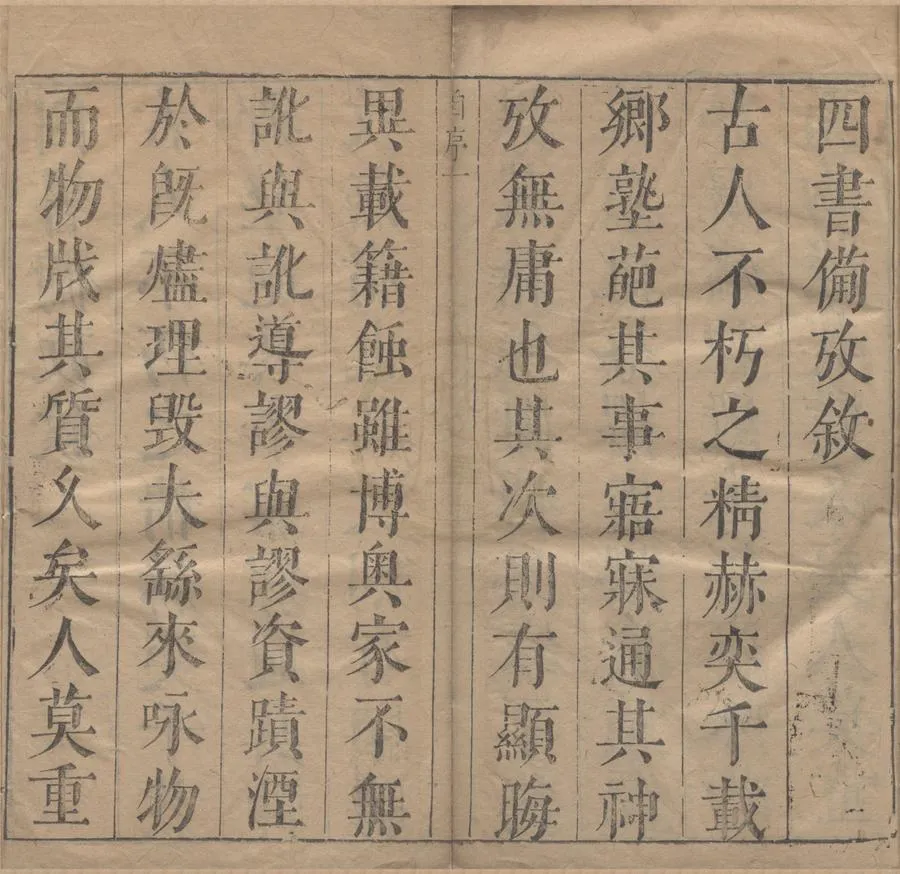 四書備攷敘
古人不朽之精赫奕千載
鄉塾葩其事寤寐通其神
攷無庸也其次則有顯晦
自序一
異載籍蝕雖博奥家不無
訛與訛導謬與謬資蹟湮
於既燼理毁夫繇來咏物
而物戕其質久矣人莫重